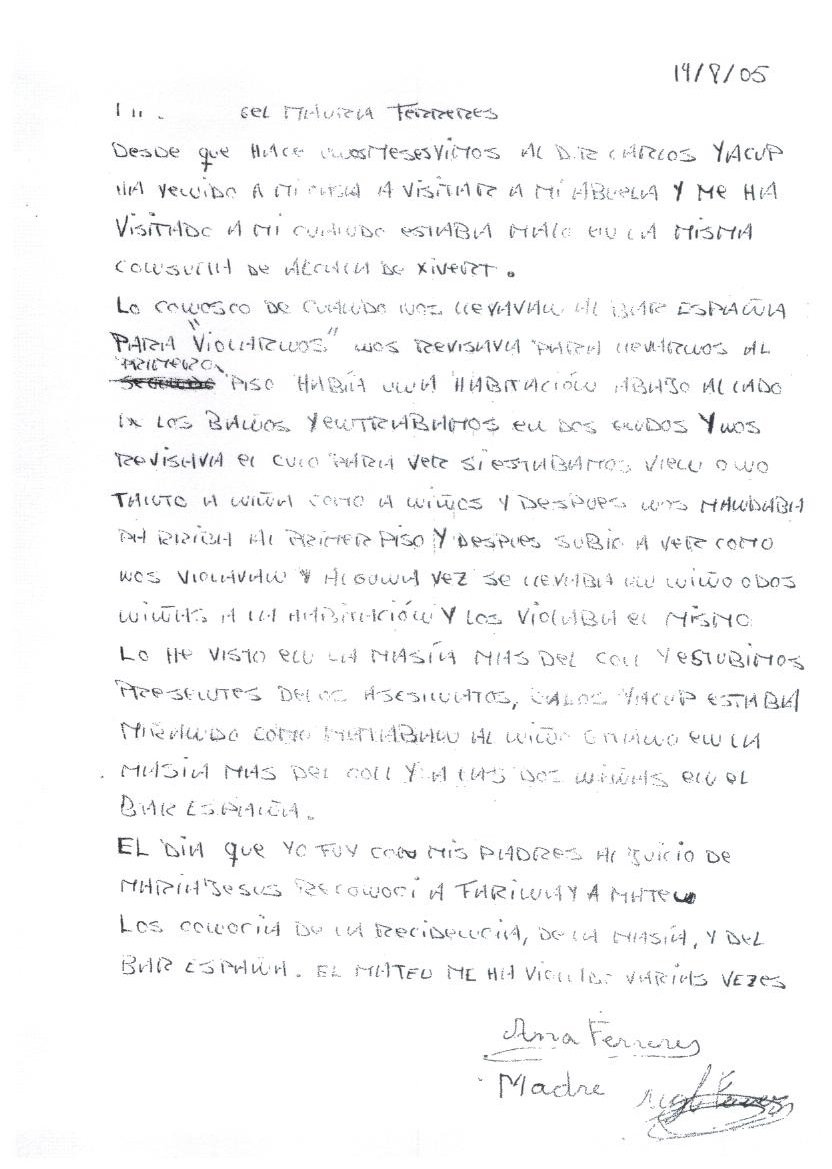 19/9/05
GEL MAURIA FERRERES
DESDE que HACE UNOS MESES VIMOS AL D.R CARLOS YACUP
HA VENIDO A MI CASA A VISITAR A MÍ ABUELA Y ME HA
VISITADO A MI CUANDO ESTABA MALO EN LA MISMA
CONSULTA DE ALCALA DE XIVERT.
LO CONOSCO DE CUANDO NOS LLEVAVAN AL BAR ESPAÑA
PARA "VIOLARNOS" NOS REVISAVA PARA LLEVARNOS AL
PRIMERO
PISO HABÍA UNA HABITACIÓN ABAJO AL LADO
DE LOS BAÑOS Y ENTRABAMOS EN DOS Y NOS
REVISAVA EL CULO PARA VER SI ESTABAMOS VIEN O NO
TANTO A NIÑA COMO A NIÑOS Y DESPUES NOS MANDABA
PA RRIBA AL PRIMER PISO Y DESPUES SUBIO A VER COMO
NOS VIOLAVAN Y ALGUNA VEZ SE LLEVABA UN NIÑO O DOS
NIÑAS A LA HABITACIÓN Y LOS VIOLABA EL MISMO
LO HE VISTO EN LA MASÍA MAS DEL COLL Y ESTUBIMOS
PRESENTES DE LOS ASESINATOS, CALOS YACUP ESTABA
MIRANDO COMO MATABAN AL NIÑO GITANO EN LA
MASIA MAS DEL COLL Y A LAS DOS NIÑAS EN EL
BAR ESPAÑA.
EL DÍA que YO FUY CON MIS PADRES AL JUICIO DE
MARIA JESUS RECONOCÍ A FARIÑA Y A MATEU
LOS CONOCIA DE LA RECIDENCIA, DE LA MASÍA, Y DEL
BAR ESPAÑA. EL MATEU ME HA VIOLADO VARIAS VEZES
Ana Ferreres
Madre